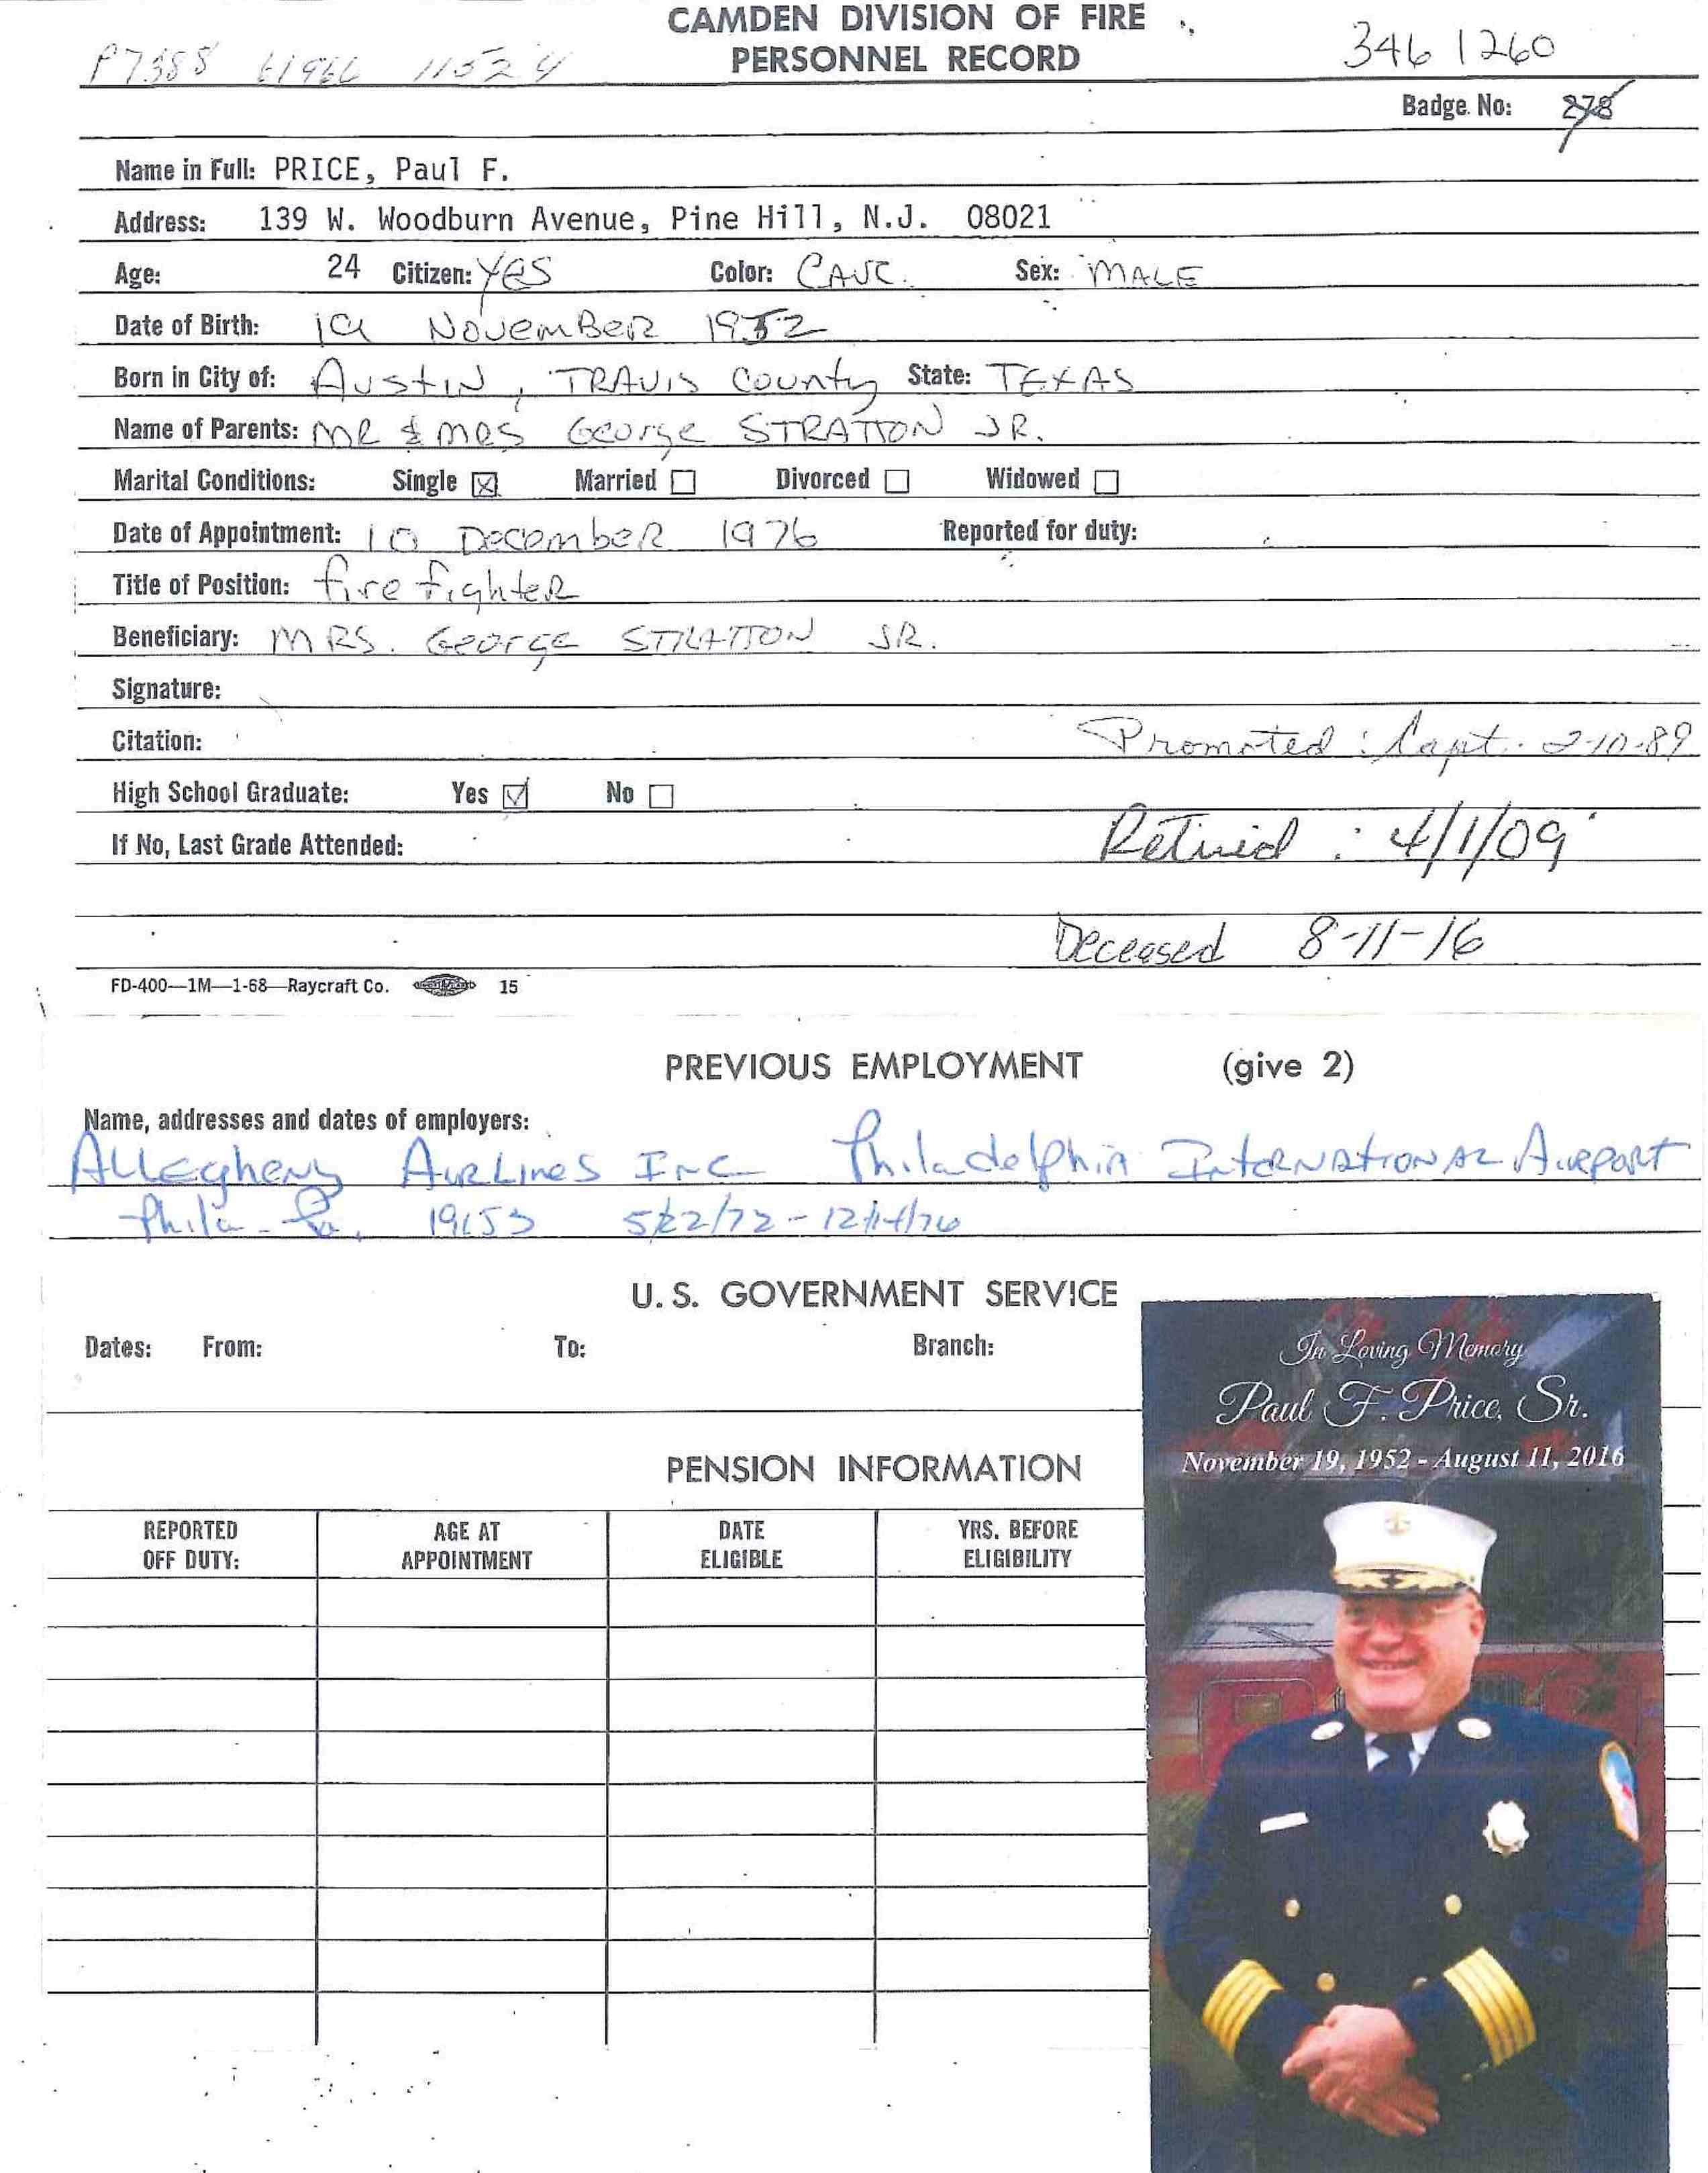 CAMDEN DIVISION OF FIRE
PERSONNEL RECORD
P7388 61966 11524
346 1260
Badge No: 278
Name in Full: PRICE, Paul F.
Address: 139 W. Woodburn Avenue, Pine Hill, N.J. 08021
Age: 24 Citizen: YES Color: CAUC. Sex: MALE
Date of Birth: 19 November 1952
Born in City of: AUSTIN, TRAVIS County State: TEXAS
Name of Parents: MR & MRS George STRATTON JR.
Marital Conditions: Single ☒ Married ☐ Divorced ☐ Widowed ☐
Date of Appointment: 10 December 1976 Reported for duty:
Title of Position: fire fighter
Beneficiary: MRS. George STRATTON JR.
Signature:
Citation:
Promoted : Capt. 2-10-89
High School Graduate: Yes ☑ No ☐
If No, Last Grade Attended:
Retired : 4/1/09
Deceased 8-11-16
FD-400—1M—1-68—Raycraft Co. 15
PREVIOUS EMPLOYMENT (give 2)
Name, addresses and dates of employers:
Allegheny Airlines Inc Philadelphia International Airport
Phila. Pa. 19153 5/22/72 - 12/14/76
U.S. GOVERNMENT SERVICE
Dates: From: To: Branch:
In Loving Memory
Paul F. Price, Sr.
November 19, 1952 - August 11, 2016
PENSION INFORMATION
REPORTED OFF DUTY: AGE AT APPOINTMENT DATE ELIGIBLE YRS. BEFORE ELIGIBILITY